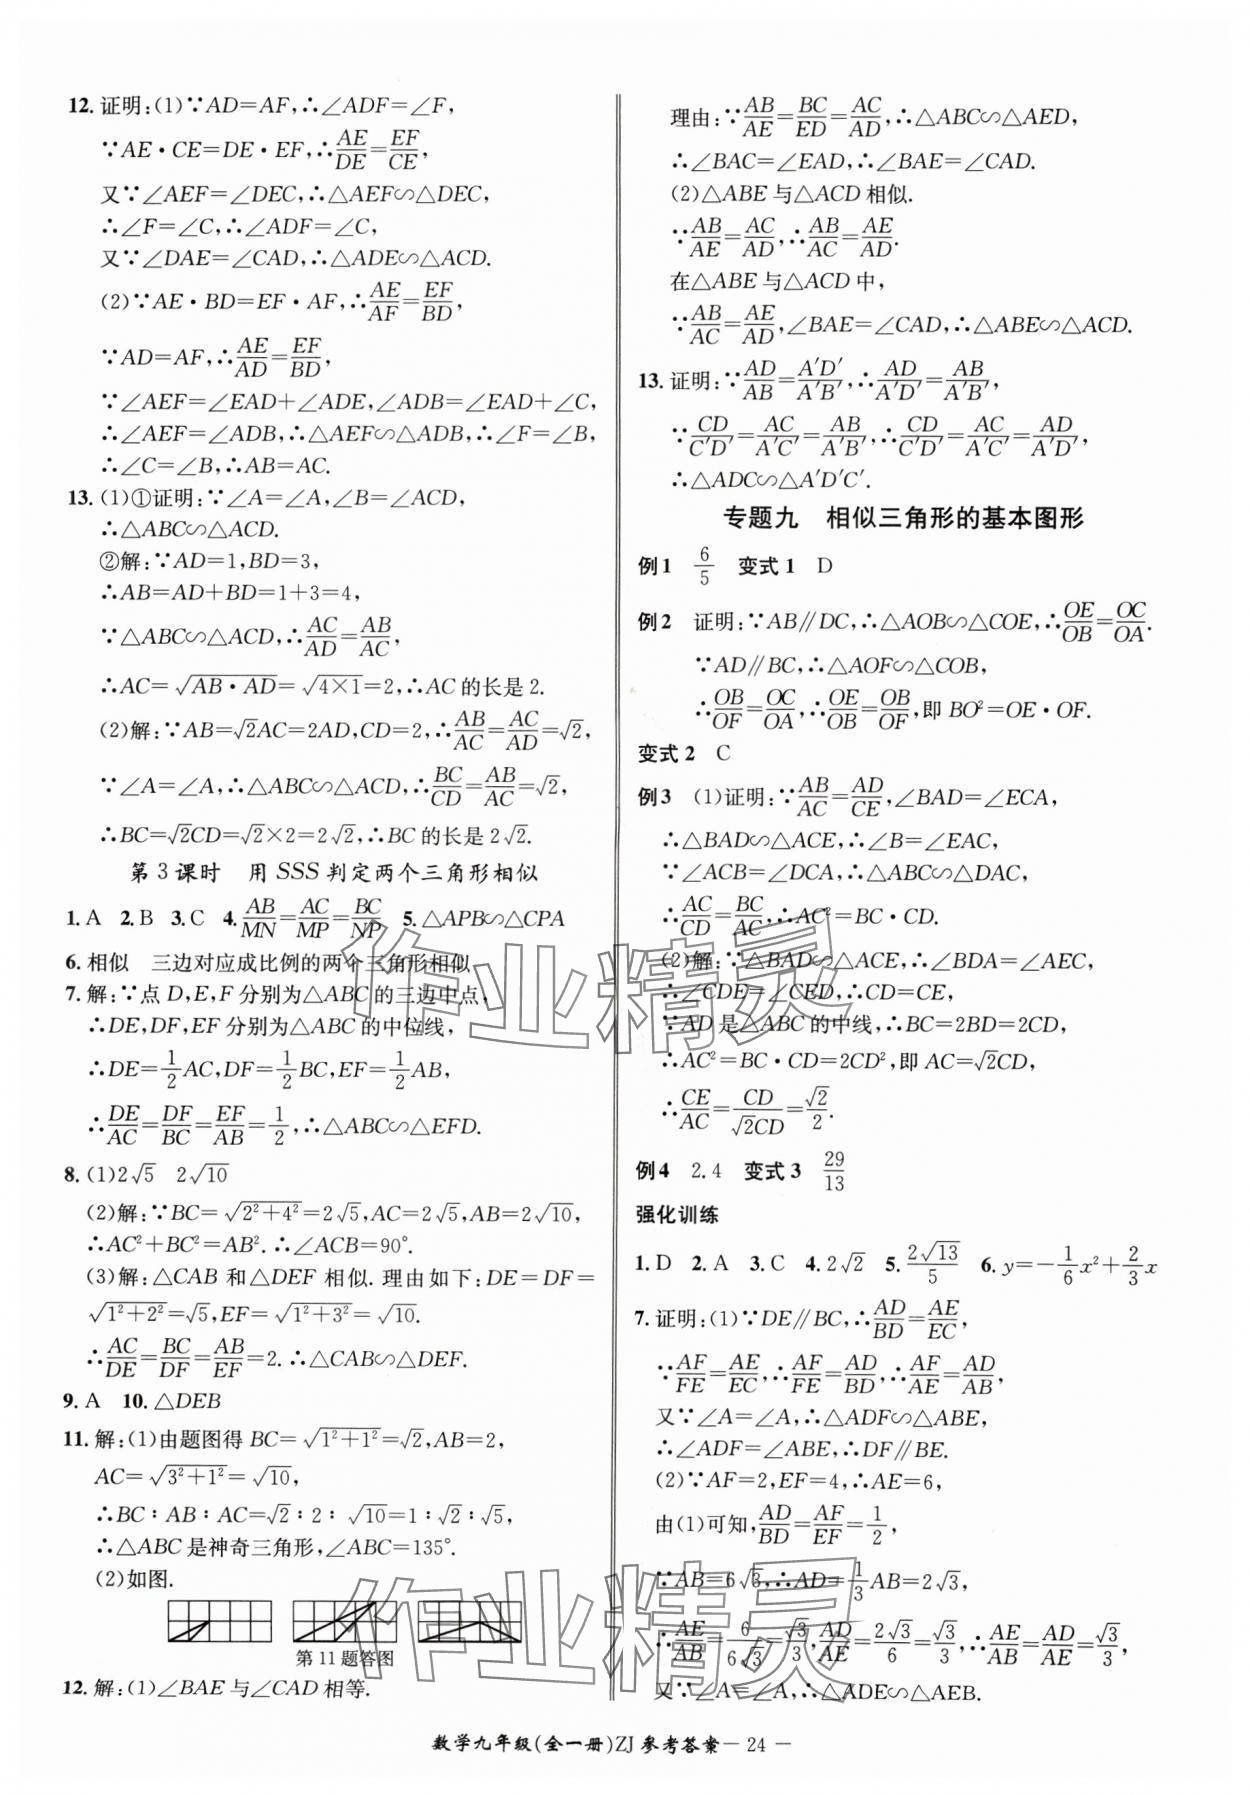 12. 证明:(1)∵AD=AF,∴∠ADF=∠F,
∵AE·CE=DE·EF,∴AE/DE=EF/CE,
又∵∠AEF=∠DEC,∴△AEF∽△DEC,
∴∠F=∠C,∴∠ADF=∠C,
又∵∠DAE=∠CAD,∴△ADE∽△ACD.
(2)∵AE·BD=EF·AF,∴AE/AF=EF/BD,
∵AD=AF,∴AE/AD=EF/BD,
∵∠AEF=∠EAD+∠ADE,∠ADB=∠EAD+∠C,
∴∠AEF=∠ADB,∴△AEF∽△ADB,∴∠F=∠B,
∴∠C=∠B,∴AB=AC.
13. (1)①证明:∵∠A=∠A,∠B=∠ACD,
∴△ABC∽△ACD.
②解:∵AD=1,BD=3,
∴AB=AD+BD=1+3=4,
∵△ABC∽△ACD,∴AC/AD=AB/AC,
∴AC=√(AB·AD)=√(4×1)=2,∴AC的长是2.
(2)解:∵AB=√2AC=2AD,CD=2,∴AB/AC=AC/AD=√2,
∵∠A=∠A,∴△ABC∽△ACD,∴BC/CD=AB/AC=√2,
∴BC=√2CD=√2×2=2√2,∴BC的长是2√2.
第3课时 用SSS判定两个三角形相似
1. A 2. B 3. C 4. AB/MN=AC/MP=BC/NP 5. △APB∽△CPA
6. 相似 三边对应成比例的两个三角形相似
7. 解:∵点D,E,F分别为△ABC的三边中点,
∴DE,DF,EF分别为△ABC的中位线,
∴DE=1/2AC,DF=1/2BC,EF=1/2AB,
∴DE/AC=DF/BC=EF/AB=1/2,∴△ABC∽△EFD.
8. (1)2√5 2√10
(2)解:∵BC=√(2²+4²)=2√5,AC=2√5,AB=2√10,
∴AC²+BC²=AB².∴∠ACB=90°.
(3)解:△CAB和△DEF相似.理由如下:DE=DF=
√(1²+2²)=√5,EF=√(1²+3²)=√10.
∴AC/DE=BC/DF=AB/EF=2.∴△CAB∽△DEF.
9. A 10. △DEB
11. 解:(1)由题图得BC=√(1²+1²)=√2,AB=2,
AC=√(3²+1²)=√10,
∴BC∶AB∶AC=√2∶2∶√10=1∶√2∶√5,
∴△ABC是神奇三角形,∠ABC=135°.
(2)如图.
第11题答图
12. 解:(1)∠BAE与∠CAD相等.
理由:∵AB/AE=BC/ED=AC/AD,∴△ABC∽△AED,
∴∠BAC=∠EAD,∴∠BAE=∠CAD.
(2)△ABE与△ACD相似.
∵AB/AE=AC/AD,∴AB/AC=AE/AD.
在△ABE与△ACD中,
∵AB/AC=AE/AD,∠BAE=∠CAD,∴△ABE∽△ACD.
13. 证明:∵AD/AB=A′D′/A′B′,∴AD/A′D′=AB/A′B′,
∵CD/C′D′=AC/A′C′=AB/A′B′,∴CD/C′D′=AC/A′C′=AD/A′D′,
∴△ADC∽△A′D′C′.
专题九 相似三角形的基本图形
例1 6/5 变式1 D
例2 证明:∵AB∥DC,∴△AOB∽△COE,∴OE/OB=OC/OA.
∵AD∥BC,∴△AOF∽△COB,
∴OB/OF=OC/OA,∴OE/OB=OB/OF,即BO²=OE·OF.
变式2 C
例3 (1)证明:∵AB/AC=AD/CE,∠BAD=∠ECA,
∴△BAD∽△ACE,∴∠B=∠EAC,
∵∠ACB=∠DCA,∴△ABC∽△DAC,
∴AC/CD=BC/AC,∴AC²=BC·CD.
(2)解:∵△BAD∽△ACE,∴∠BDA=∠AEC,
∴∠CDE=∠CED,∴CD=CE,
∵AD是△ABC的中线,∴BC=2BD=2CD,
∴AC²=BC·CD=2CD²,即AC=√2CD,
∴CE/AC=CD/√2CD=√2/2.
例4 2.4 变式3 29/13
强化训练
1. D 2. A 3. C 4. 2√2 5. 2√13/5 6. y=-1/6x²+2/3x
7. 证明:(1)∵DE∥BC,∴AD/BD=AE/EC,
∵AF/FE=AE/EC,∴AF/FE=AD/BD,∴AF/AE=AD/AB,
又∵∠A=∠A,∴△ADF∽△ABE,
∴∠ADF=∠ABE,∴DF∥BE.
(2)∵AF=2,EF=4,∴AE=6,
由(1)可知,AD/BD=AF/EF=1/2,
∵AB=6√3,∴AD=1/3AB=2√3,
∴AE/AB=6/6√3=√3/3,AD/AE=2√3/6=√3/3,∴AE/AB=AD/AE=√3/3,
又∵∠A=∠A,∴△ADE∽△AEB.
数学九年级(全一册)ZJ 参考答案—24—
作业精灵
作业精灵